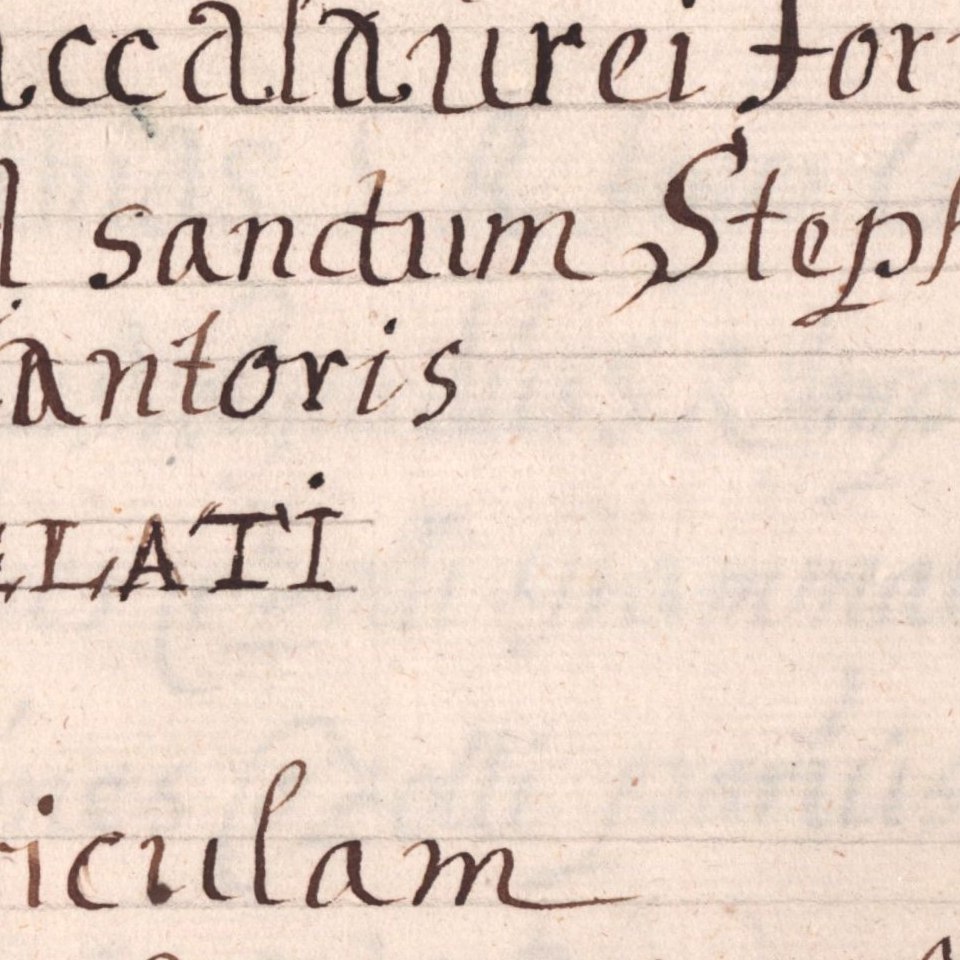 accalaurei for
l sanctum Steph
antoris
ELATI
riculam